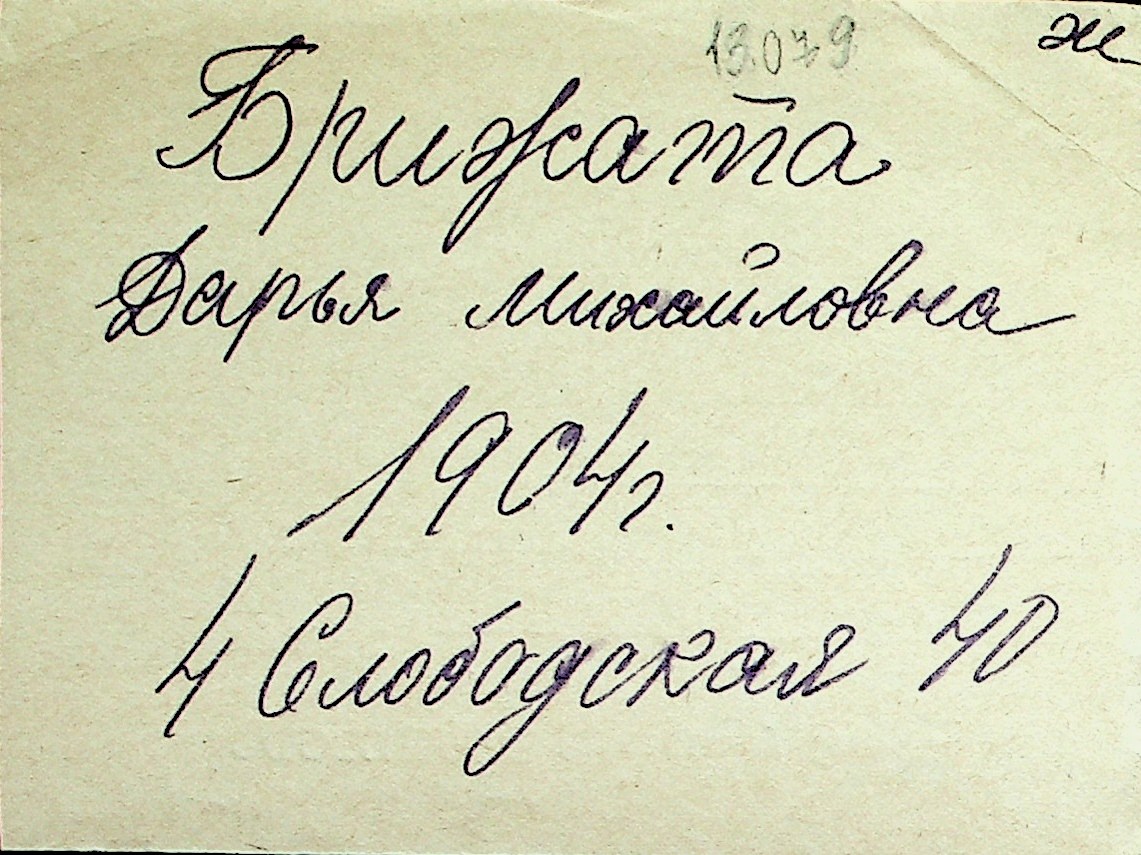 13079 ж
Брижата
Дарья Михайловна
1904г.
4 Слободская 40